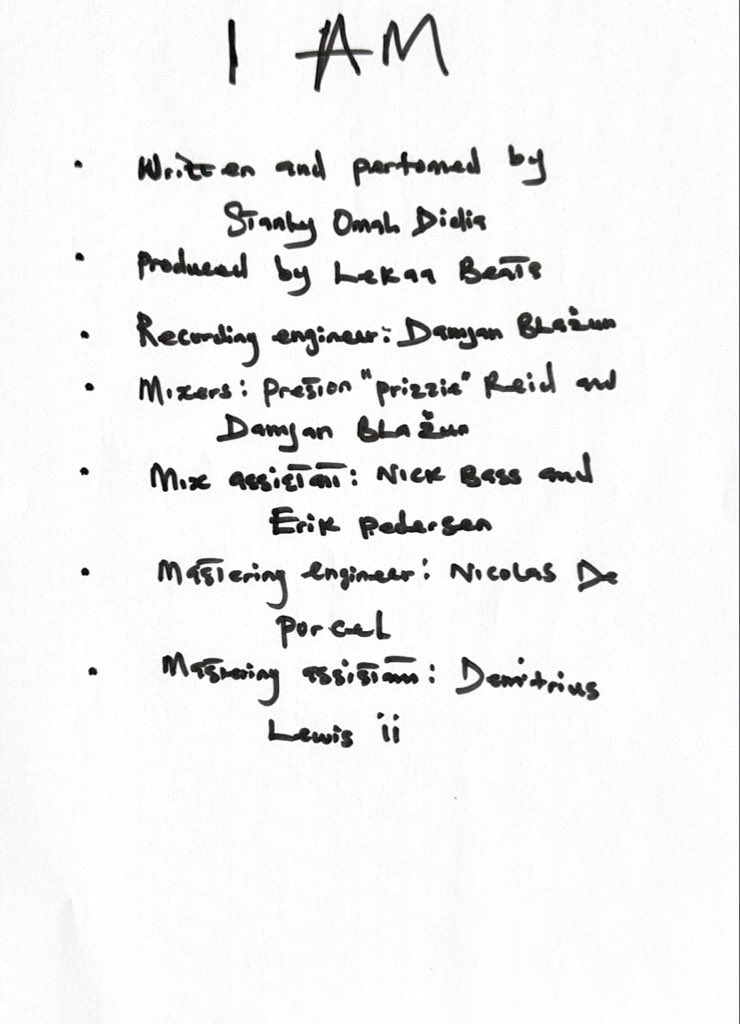 I AM
• Written and performed by
Stanley Omah Didia
• Produced by Lekaa Beats
• Recording engineer: Damjan Blažun
• Mixers: Preston "prizzie" Reid and
Damjan Blažun
• Mix assistant: Nick Bass and
Erik Pedersen
• Mastering engineer: Nicolas De
Porcel
• Mastering assistant: Demitrius
Lewis ii